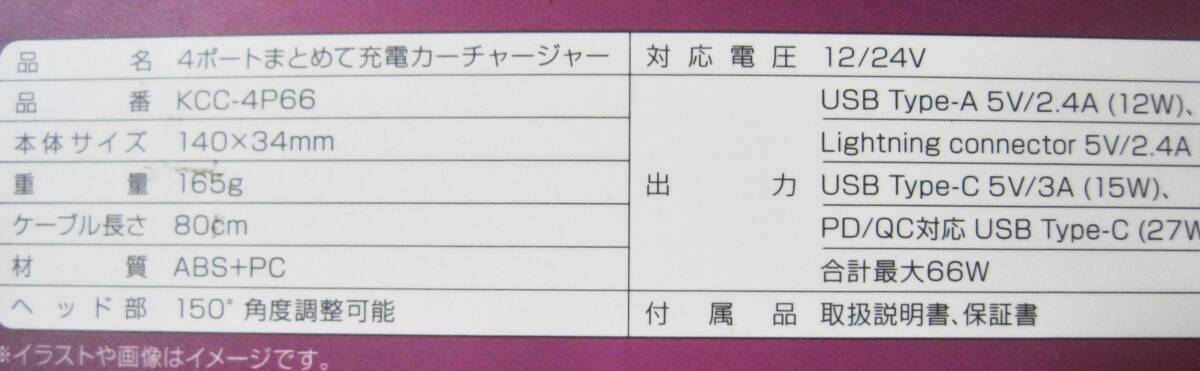 品名 4ポートまとめて充電カーチャージャー
品番 KCC-4P66
本体サイズ 140×34mm
重量 165g
ケーブル長さ 80cm
材質 ABS+PC
ヘッド部 150°角度調整可能
対応電圧 12/24V
出力 USB Type-A 5V/2.4A (12W)、
Lightning connector 5V/2.4A
USB Type-C 5V/3A (15W)、
PD/QC対応 USB Type-C (27W
合計最大66W
付属品 取扱説明書、保証書
※イラストや画像はイメージです。